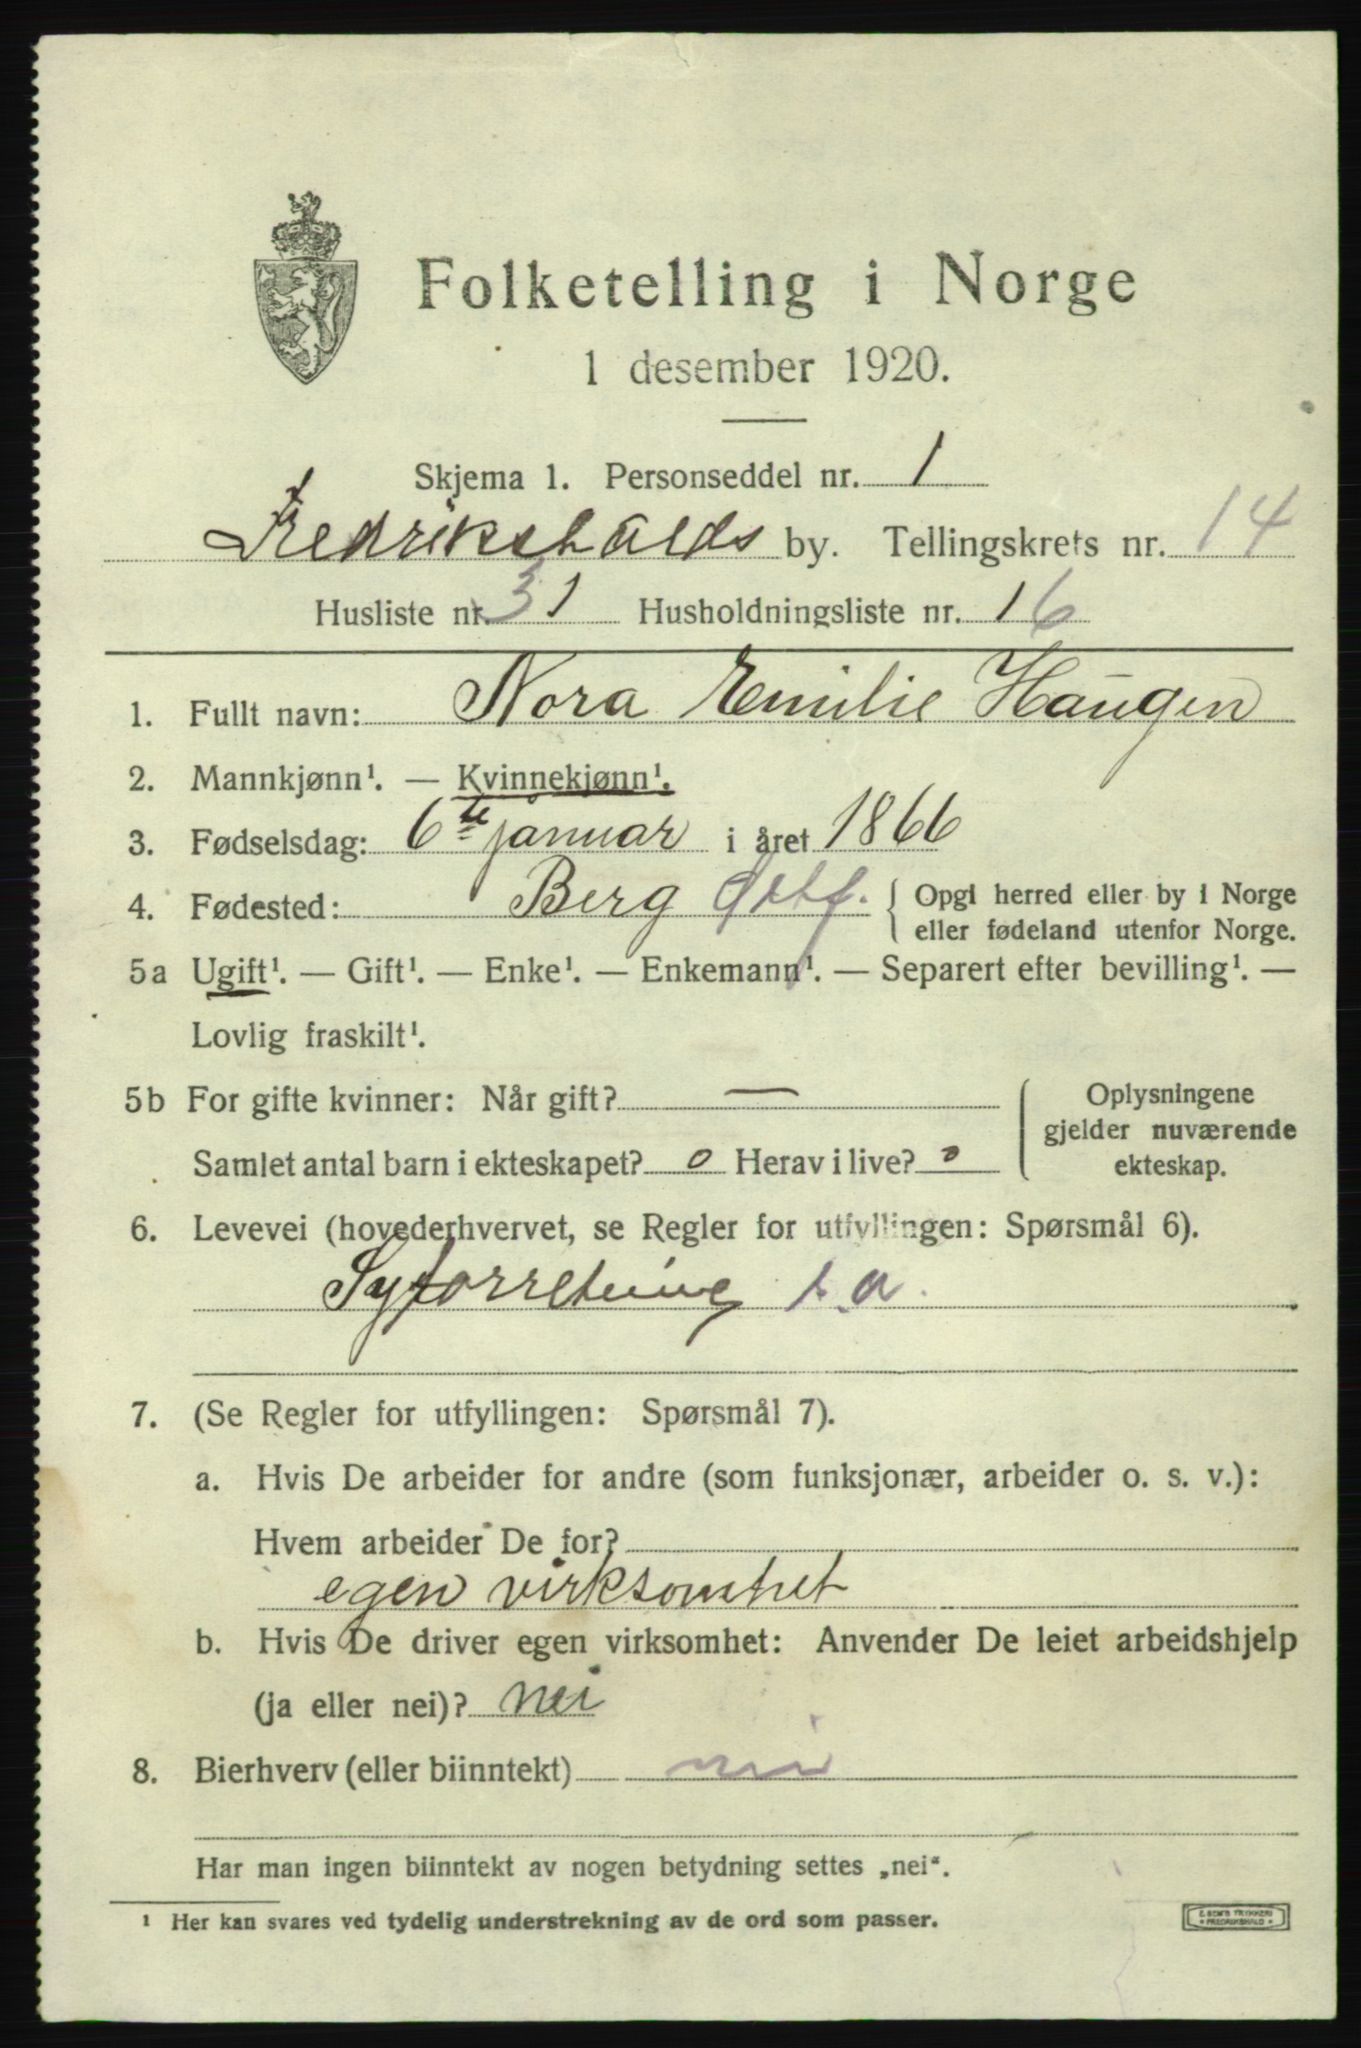 Folketelling i Norge
1 desember 1920.
Skjema 1. Personseddel nr. 1
Fredrikshalds by. Tellingskrets nr. 14
Husliste nr. 31 Husholdningsliste nr. 16
1. Fullt navn: Nora Emilie Haugen
2. Mannkjønn¹. — Kvinnekjønn¹.
3. Fødselsdag: 6te januar i året 1866
4. Fødested: Berg Østf. { Opgi herred eller by i Norge
eller fødeland utenfor Norge.
5a Ugift¹. — Gift¹. — Enke¹. — Enkemann¹. — Separert efter bevilling¹. —
Lovlig fraskilt¹.
5b For gifte kvinner: Når gift? —
Samlet antal barn i ekteskapet? 0 Herav i live? 0
Oplysningene
gjelder nuværende
ekteskap.
6. Levevei (hovederhvervet, se Regler for utfyllingen: Spørsmål 6).
Syforretning s.a.
7. (Se Regler for utfyllingen: Spørsmål 7).
a. Hvis De arbeider for andre (som funksjonær, arbeider o. s. v.):
Hvem arbeider De for?
egen virksomhet
b. Hvis De driver egen virksomhet: Anvender De leiet arbeidshjelp
(ja eller nei)? nei
8. Bierhverv (eller biinntekt) nei
Har man ingen biinntekt av nogen betydning settes „nei“.
¹ Her kan svares ved tydelig understrekning av de ord som passer.
E. SEM'S TRYKKERI
FREDRIKSHALD